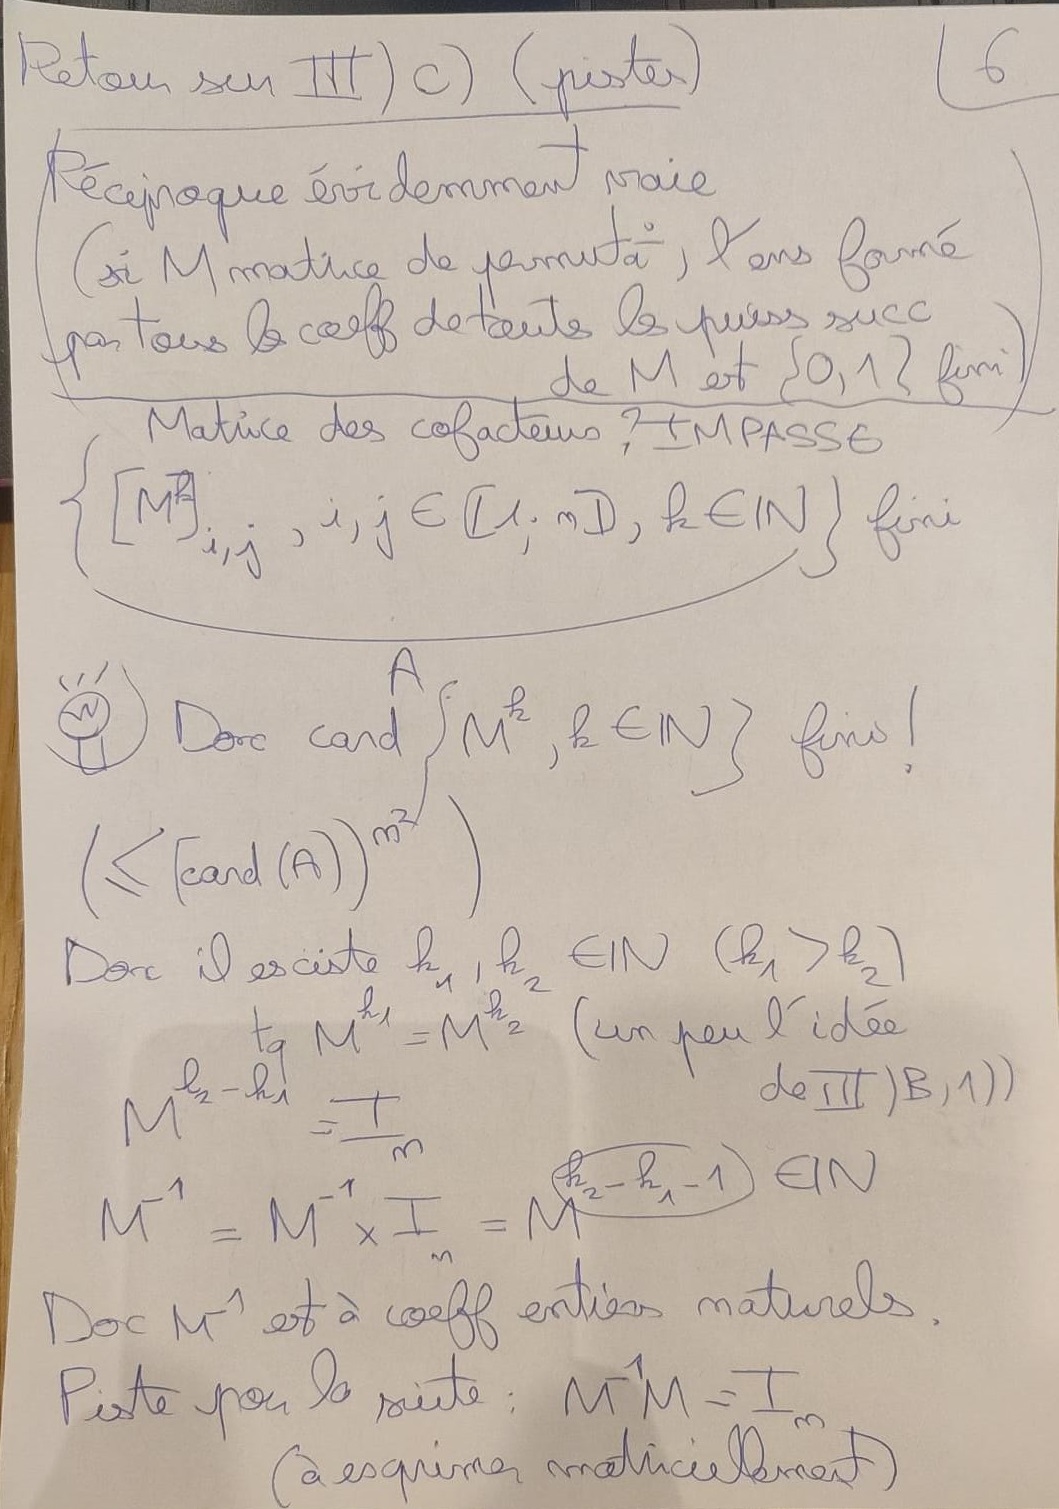 Retour sur III) C) (pistes)
6
Réciproque évidemment vraie
(si M matrice de permutā°, l'ens formé
par tous les coeff de toutes les puiss succ
de M est {0,1} fini)
Matrice des cofacteurs ? IMPASSE
{[M^k]_{i,j}, i,j ∈ ⟦1;n⟧, k ∈ ℕ} fini
A
Donc card {M^k, k ∈ ℕ} fini!
(≤ (card(A))^{n²})
Donc il existe k₁, k₂ ∈ ℕ (k₁ > k₂)
tq M^{k₁} = M^{k₂} (un peu l'idée
de III) B, 1))
M^{k₂-k₁} = I_n
M⁻¹ = M⁻¹ × I_n = M^{k₂-k₁-1} ∈ ℕ
Doc M⁻¹ est à coeff entiers naturels.
Piste pour la suite : M⁻¹M = I_n
(à exprimer matriciellement)